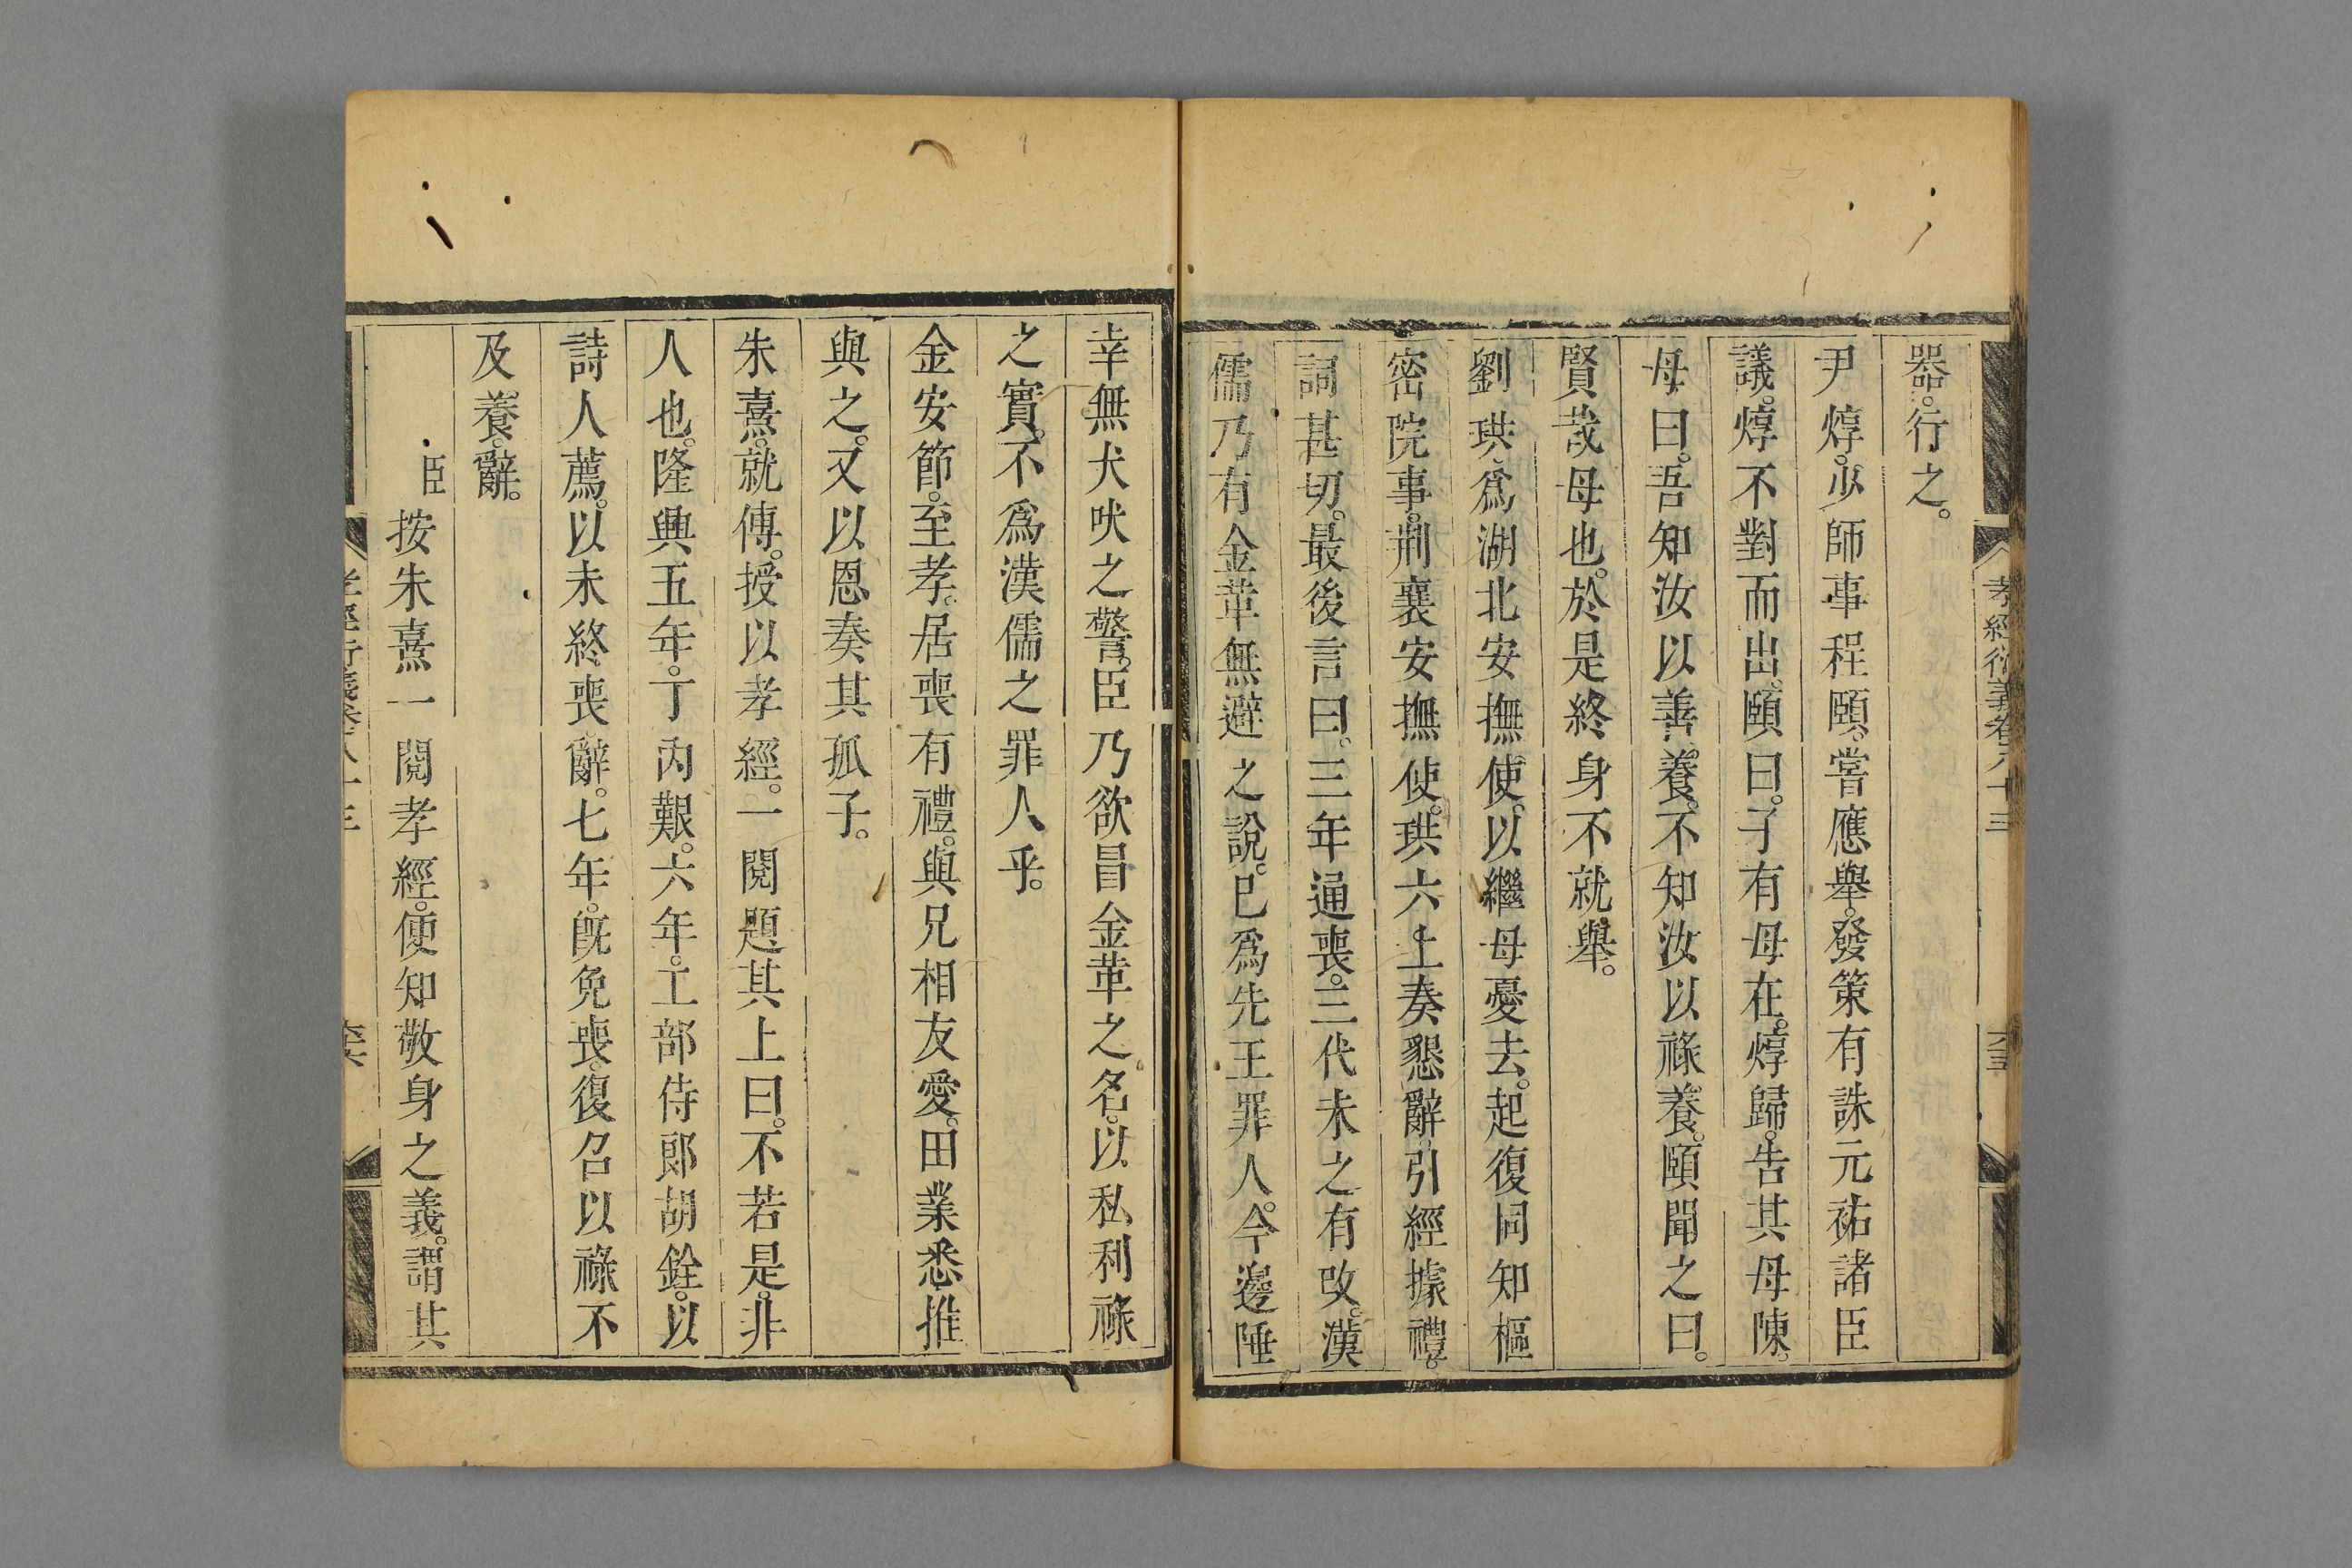 孝經衍義卷八十三
器。行之。
尹焞。少師事程頤。嘗應舉。發策有誅元祐諸臣
議。焞不對而出。頤曰。子有母在。焞歸。告其母陳。
母曰。吾知汝以善養。不知汝以祿養。頤聞之曰。
賢哉母也。於是終身不就舉。
劉珙爲湖北安撫使。以繼母憂去。起復同知樞
密院事。荆襄安撫使。珙六上奏懇辭。引經據禮。
詞甚切。最後言曰。三年通喪。三代未之有改。漢
儒乃有金革無避之說。已爲先王罪人。今邊陲
幸無犬吠之警。臣乃欲冒金革之名。以私利祿
之實。不爲漢儒之罪人乎。
金安節。至孝。居喪有禮。與兄相友愛。田業悉推
與之。又以恩奏其孤子。
朱熹。就傅。授以孝經。一閱題其上曰。不若是。非
人也。隆興五年。丁內艱。六年。工部侍郎胡銓。以
詩人薦。以未終喪辭。七年。旣免喪。復召以祿不
及養。辭。
臣按朱熹一閱孝經。便知敬身之義。謂其
孝經衍義卷八十三